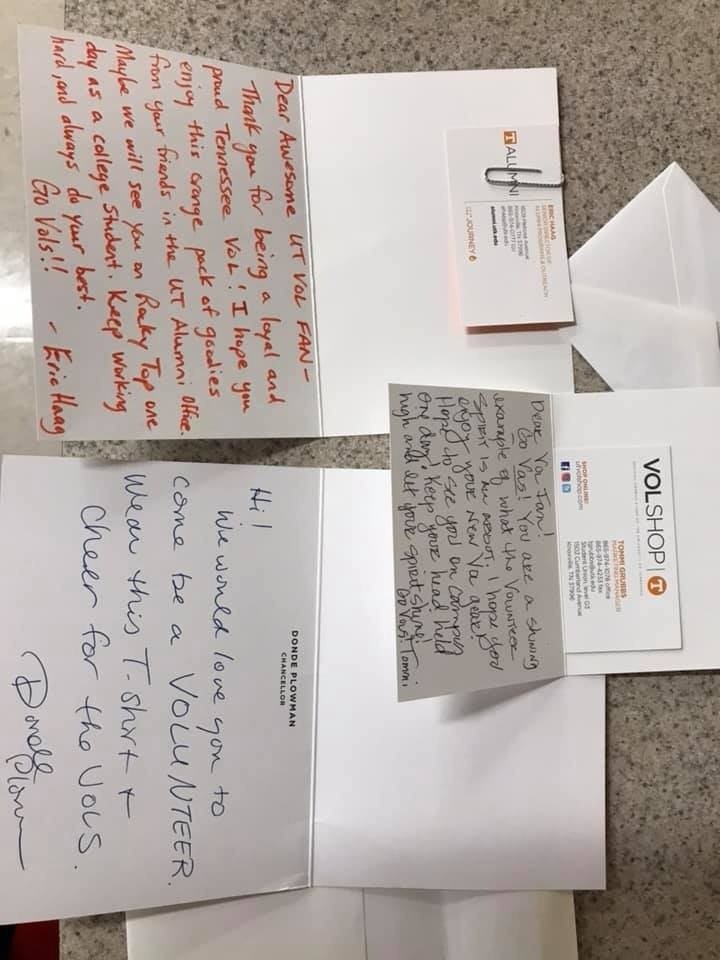 Dear Awesome UT VOL FAN-
Thank you for being a loyal and
proud Tennessee Vol! I hope you
enjoy this orange pack of goodies
from your friends in the UT Alumni Office.
Maybe we will see you on Rocky Top one
day as a college student. Keep working
hard, and always do your best.
Go Vols!!
- Eric Haag
T ALUMNI
ERIC HAAG
SENIOR DIRECTOR OF
ALUMNI PROGRAMS & OUTREACH
1609 Melrose Avenue
Knoxville, TN 37996
alumni.utk.edu
JOURNEY
Dear Vol Fan!
Go Vols! You are a shining
example of what the Volunteer
spirit is all about. I hope you
enjoy your new Vol gear!
Hope to see you on campus
one day! Keep your head held
high and let your spirit shine!
Go Vols! Tommi
VOLSHOP | T
TOMMI GRUBBS
MARKETING MANAGER
865-974-1076 office
865-974-4233 fax
tgrubbs@utk.edu
Student Union, level 02
1502 Cumberland Avenue
Knoxville, TN 37996
SHOP ONLINE!
utvolshop.com
DONDE PLOWMAN
CHANCELLOR
Hi!
We would love you to
come be a VOLUNTEER.
Wear this T-shirt +
cheer for the VOLS.
Donde Plowman